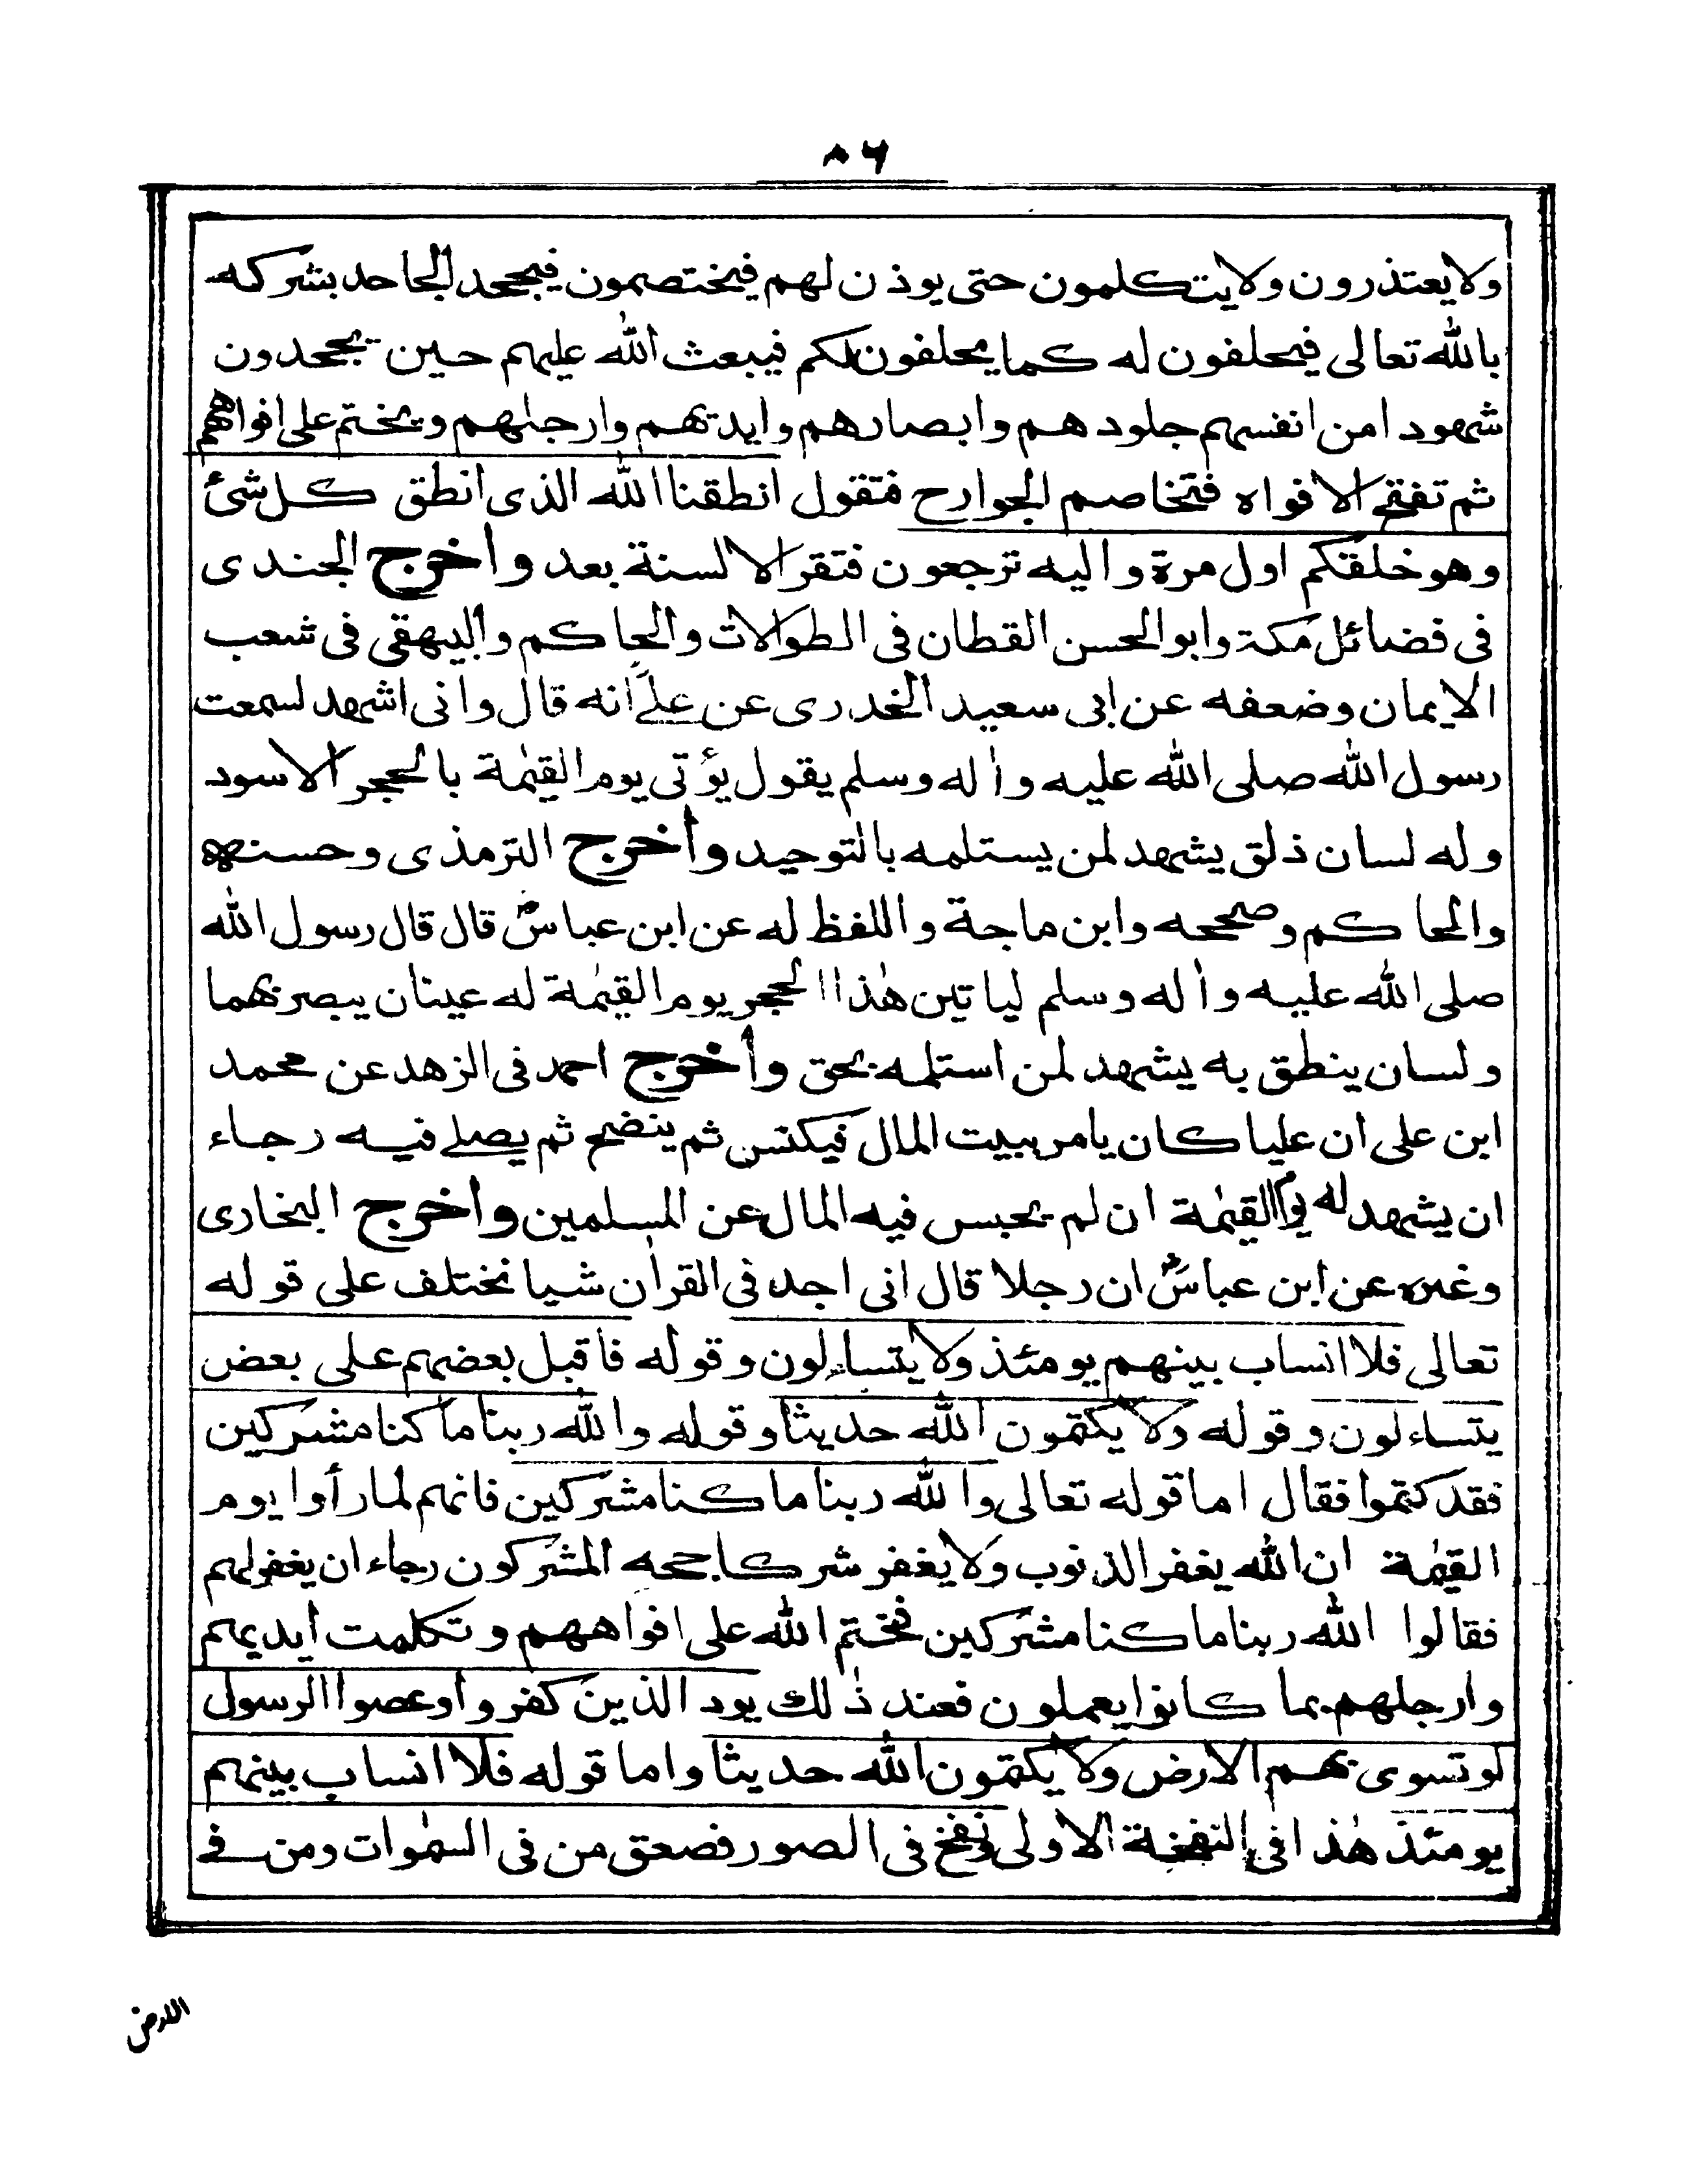 ٨٦
ولا يعتذرون ولا يتكلمون حتى يوذن لهم فيختصمون فيجحد الجاحد بشركه
بالله تعالى فيحلفون له كما يحلفون لكم فيبعث الله عليهم حين يجحدون
شهودا من انفسهم جلودهم وابصارهم وايديهم وارجلهم ويختم على افواههم
ثم تفتح الافواه فتخاصم الجوارح فتقول انطقنا الله الذى انطق كل شئ
وهو خلقكم اول مرة واليه ترجعون فتقر الالسنة بعد وأخرج الجندى
فى فضائل مكة وابو الحسن القطان فى الطوالات والحاكم والبيهقى فى شعب
الايمان وضعفه عن ابى سعيد الخدرى عن علي انه قال وانى اشهد لسمعت
رسول الله صلى الله عليه واٰله وسلم يقول يؤتى يوم القيٰمة بالحجر الاسود
وله لسان ذلق يشهد لمن يستلمه بالتوحيد وأخرج الترمذى وحسنه
والحاكم وصححه وابن ماجة واللفظ له عن ابن عباسؓ قال قال رسول الله
صلى الله عليه واٰله وسلم لياتين هٰذا الحجر يوم القيٰمة له عينان يبصر بهما
ولسان ينطق به يشهد لمن استلمه بحق وأخرج احمد فى الزهد عن محمد
ابن على ان عليا كان يامر ببيت المال فيكنس ثم ينضح ثم يصلے فيه رجاء
ان يشهد له يوم القيٰمة ان لم يحبس فيه المال عن المسلمين وأخرج البخارى
وغيره عن ابن عباسؓ ان رجلا قال انى اجد فى القراٰن شيا نختلف على قوله
تعالى فلا انساب بينهم يومئذ ولا يتساءلون وقوله فاقبل بعضهم على بعض
يتساءلون وقوله ولا يكتمون الله حديثا وقوله والله ربنا ما كنا مشركين
فقد كتموا فقال اما قوله تعالى والله ربنا ما كنا مشركين فانهم لما رأوا يوم
القيٰمة ان الله يغفر الذنوب ولا يغفر شركا جحه المشركون رجاء ان يغفر لهم
فقالوا الله ربنا ما كنا مشركين فختم الله على افواههم وتكلمت أيديهم
وارجلهم بما كانوا يعملون فعند ذٰلك يود الذين كفروا وعصوا الرسول
لو تسوى بهم الارض ولا يكتمون الله حديثا واما قوله فلا انساب بينهم
يومئذ هٰذا فى النفخة الاولى ونفخ فى الصور فصعق من فى السمٰوات ومن فے
الارض